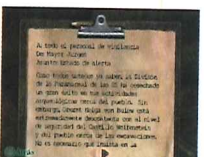 A todo el personal de vigilancia
De Mayor Jurgen
Asunto Estado de alerta
Como todos ustedes ya saben, la División
de lo Paranormal de las SS ha cosechado
un gran éxito en sus actividades
arqueológicas cerca del pueblo. Sin
embargo, Oberst Helga von Bulow está
extremadamente descontenta con el nivel
de seguridad del Castillo Wolfenstein
y del pueblo cerca de las excavaciones.
No es necesario que insista en la